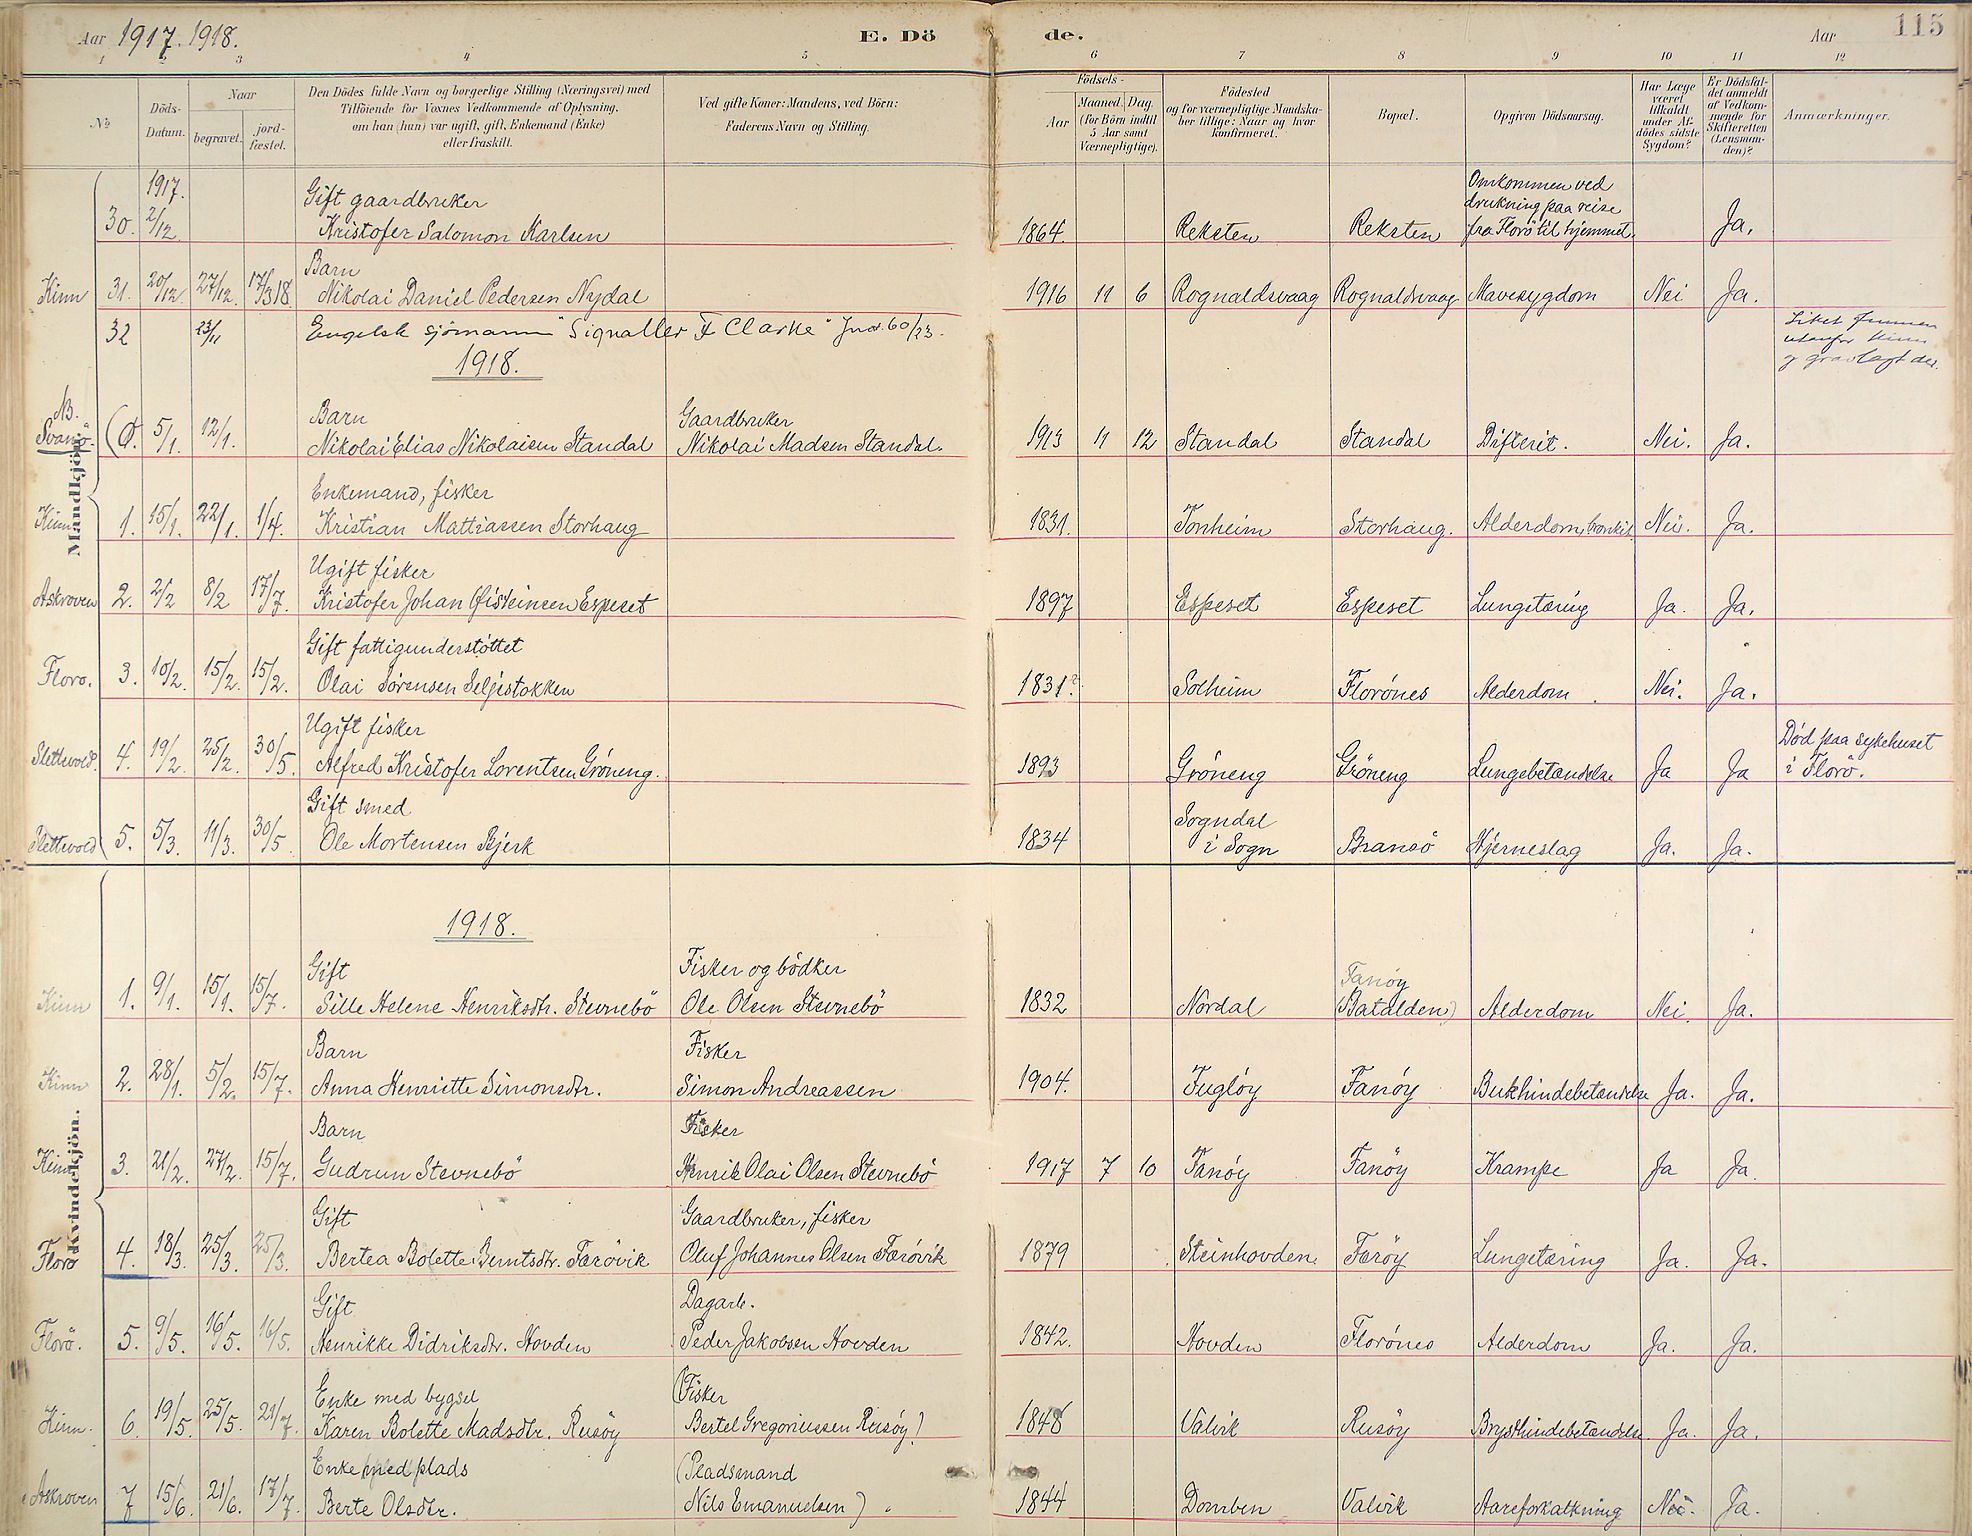 Aar 1917. 1918. E. Dö de. Aar 115
1 2 3 4 5 6 7 8 9 10 11 12
№ Döds-Datum. Naar begravet. jordfæstet. Den Dödes fulde Navn og borgerlige Stilling (Næringsvei) med Tilföiende for Voxnes Vedkommende af Oplysning, om han (hun) var ugift, gift, Enkemand (Enke) eller fraskilt. Ved gifte Koner: Mandens, ved Börn: Faderens Navn og Stilling. Födsels- Aar Maaned. Dag. (for Börn indtil 5 Aar samt Værnepligtige). Födested og for værnepligtige Mandskaber tillige: Naar og hvor konfirmeret. Bopæl. Opgiven Dödsaarsag. Har Læge været tilkaldt under Afdödes sidste Sygdom? Er Dödsfaldet anmeldt af Vedkommende for Skifteretten (Lensmanden)? Anmærkninger.
Mandkjön.
1917.
Gift gaardbruker Omkommen ved
drukning paa reise
30. 2/12 Kristofer Salomon Karlsen 1864. Reksten Reksten fra Florö til hjemmet. Ja.
Barn
Kinn 31. 20/12. 27/12. 17/3 18 Nikolai Daniel Pedersen Nydal 1916 11 6 Rognaldsvaag Rognaldsvaag Mavesygdom Nei Ja.
32 23/11 Engelsk sjömann "Signaller F Clarke" Jnr. 60/23. Liket funnen
utanfor Kinn
og gravlagt der.
1918.
NB. Barn Gaardbruker
Svanö. 5/1. 12/1. Nikolai Elias Nikolaisen Standal Nikolai Madsen Standal. 1913 11 12 Standal Standal Difterit. Nei. Ja.
Enkemand, fisker
Kinn 1. 15/1. 22/1. 1/4. Kristian Mattiassen Storhaug 1831. Tonheim Storhaug. Alderdom, bronkit. Nei. Ja.
Ugift fisker
Askroven 2. 2/2 8/2 17/7. Kristofer Johan Øisteinsen Espeset 1897 Espeset Espeset Lungetæring Ja. Ja.
Gift fattigunderstöttet
Floro. 3. 10/2. 15/2. 15/2. Olai Sörensen Seljestokken 1831? Solheim Florönes Alderdom. Nei. Ja.
Ugift fisker Død paa sykehuset
Slettevold. 4. 19/2. 25/2. 30/5. Alfred Kristofer Lorentsen Gröneng. 1893 Gröneng Gröneng Lungebetændelse Ja Ja i Florö.
Gift smed Sogndal
Slettevold 5. 5/3. 11/3. 30/5. Ole Mortensen Bjerk 1834 i Sogn Bransö Hjerneslag Ja. Ja.
Kvindekjön.
1918.
Gift Fisker og bödker Fanöy
Kinn 1. 9/1. 15/1. 15/7. Sille Helene Henriksdtr. Stevnebö Ole Olsen Stevnebö 1832 Nordal (Batalden) Alderdom Nei. Ja.
Barn Fisker
Kinn 2. 28/1. 5/2. 15/7. Anna Henriette Simonsdtr. Simon Andreassen 1904. Fuglöy Fanöy Bukhindebetændelse Ja. Ja.
Barn Fisker
Kinn 3. 21/2. 27/2. 15/7. Gudrun Stevnebö Henrik Olai Olsen Stevnebö 1917 7 10 Fanöy Fanöy Krampe Ja Ja.
Gift Gaardbruker, fisker
Floro 4. 18/3. 25/3. 25/3. Bertea Bolette Berntsdtr. Færövik Oluf Johannes Olsen Færövik 1879 Steinhovden. Færöy Lungetæring Ja. Ja.
Gift Dagarb.
Florö. 5. 9/5. 16/5. 16/5. Henrikke Didriksdtr. Hovden Peder Jakobsen Hovden 1842. Hovden Florönes Alderdom Ja. Ja.
Enke med bygsel (Fisker
Kinn. 6. 19/5. 25/5. 21/7. Karen Bolette Madsdtr. Rusöy Bertel Gregoriussen Rusöy) 1848 Valvik Rusöy Brysthindebetændelse Ja. Ja.
Enke med plads (Pladsmand
Askroven 7 15/6. 21/6. 17/7. Berte Olsdtr. Nils Emanuelsen) 1844 Domben Valvik Aareforkalkning Nei. Ja.